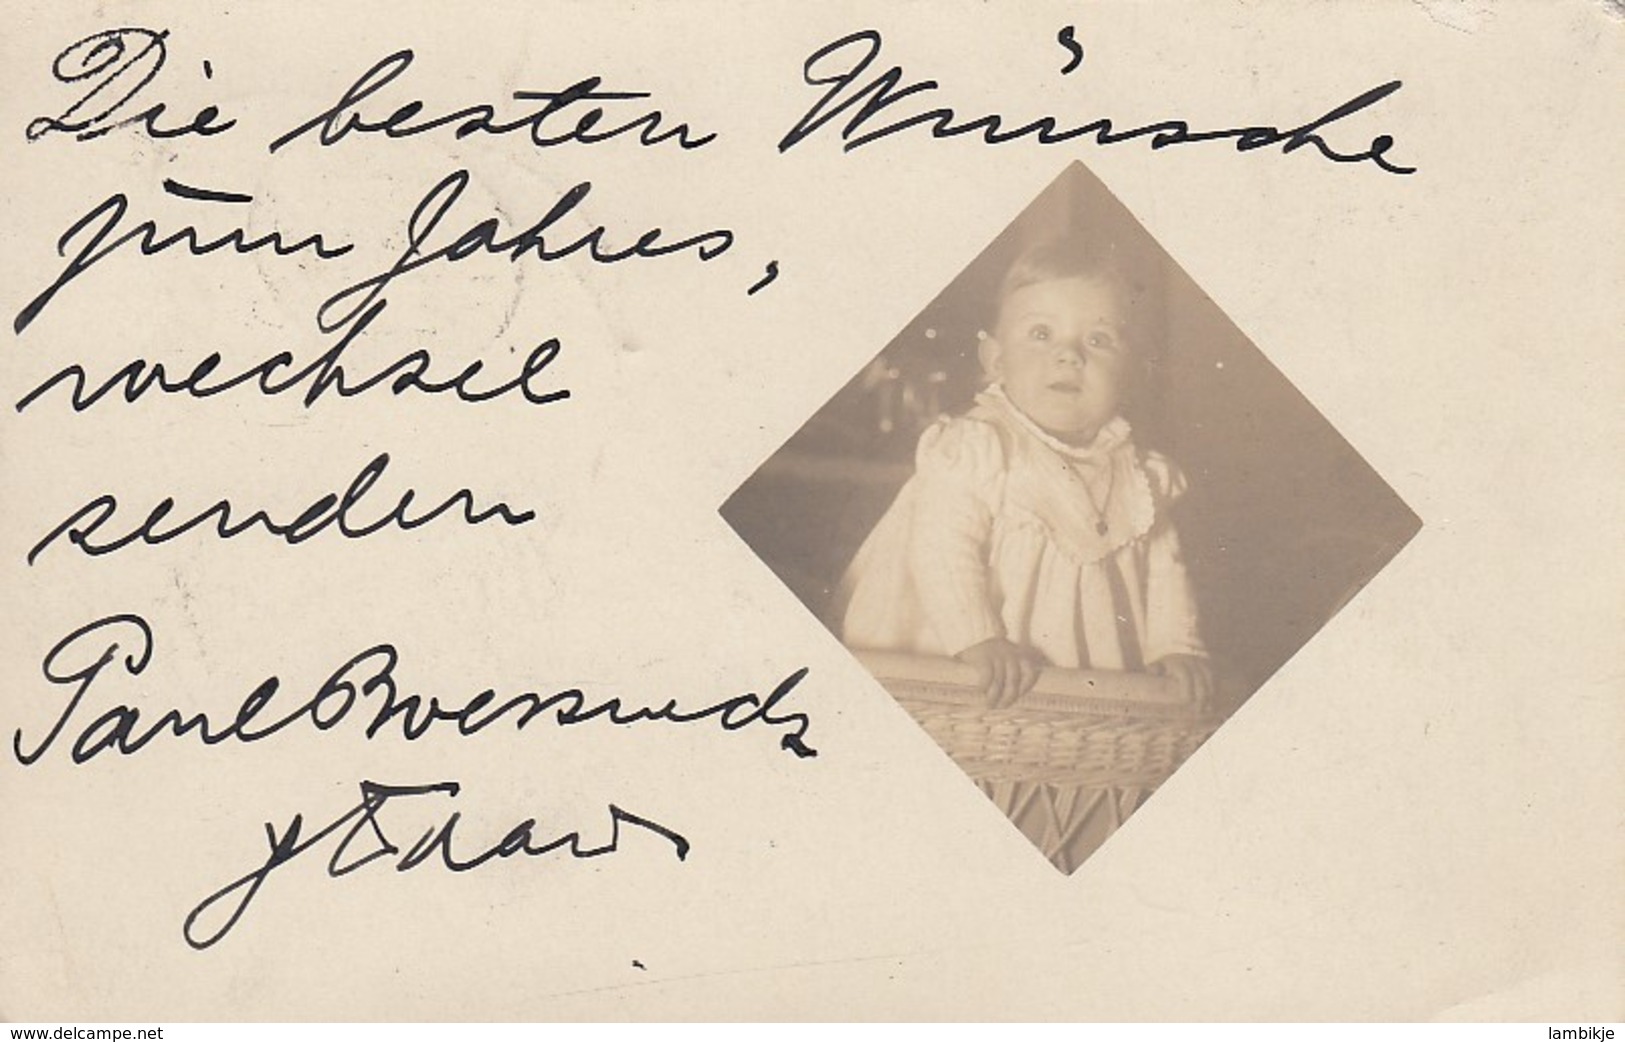 Die besten Wünsche
zum Jahres,
wechsel
senden
Paul
www.delcampe.net
lambikje